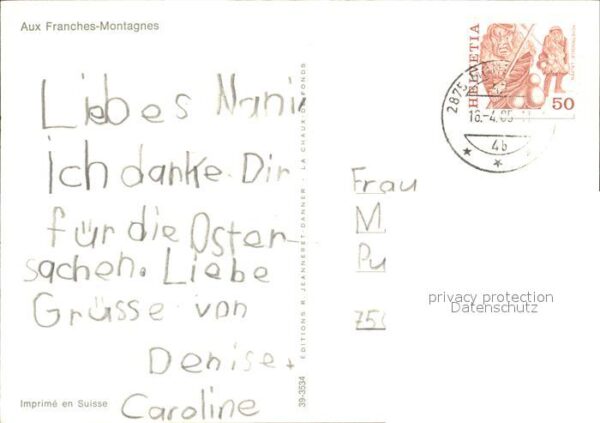 Aux Franches-Montagnes
Liebes Nani
ich danke Dir
für die Oster-
sachen. Liebe
Grüsse von
Denise +
Caroline
Imprimé en Suisse
39-3534 EDITIONS R. JEANNERET-DANNER - LA CHAUX-DE-FONDS
HELVETIA
50
2875
18.-4.85
4b
Frau
M
Pu
75
privacy protection
Datenschutz